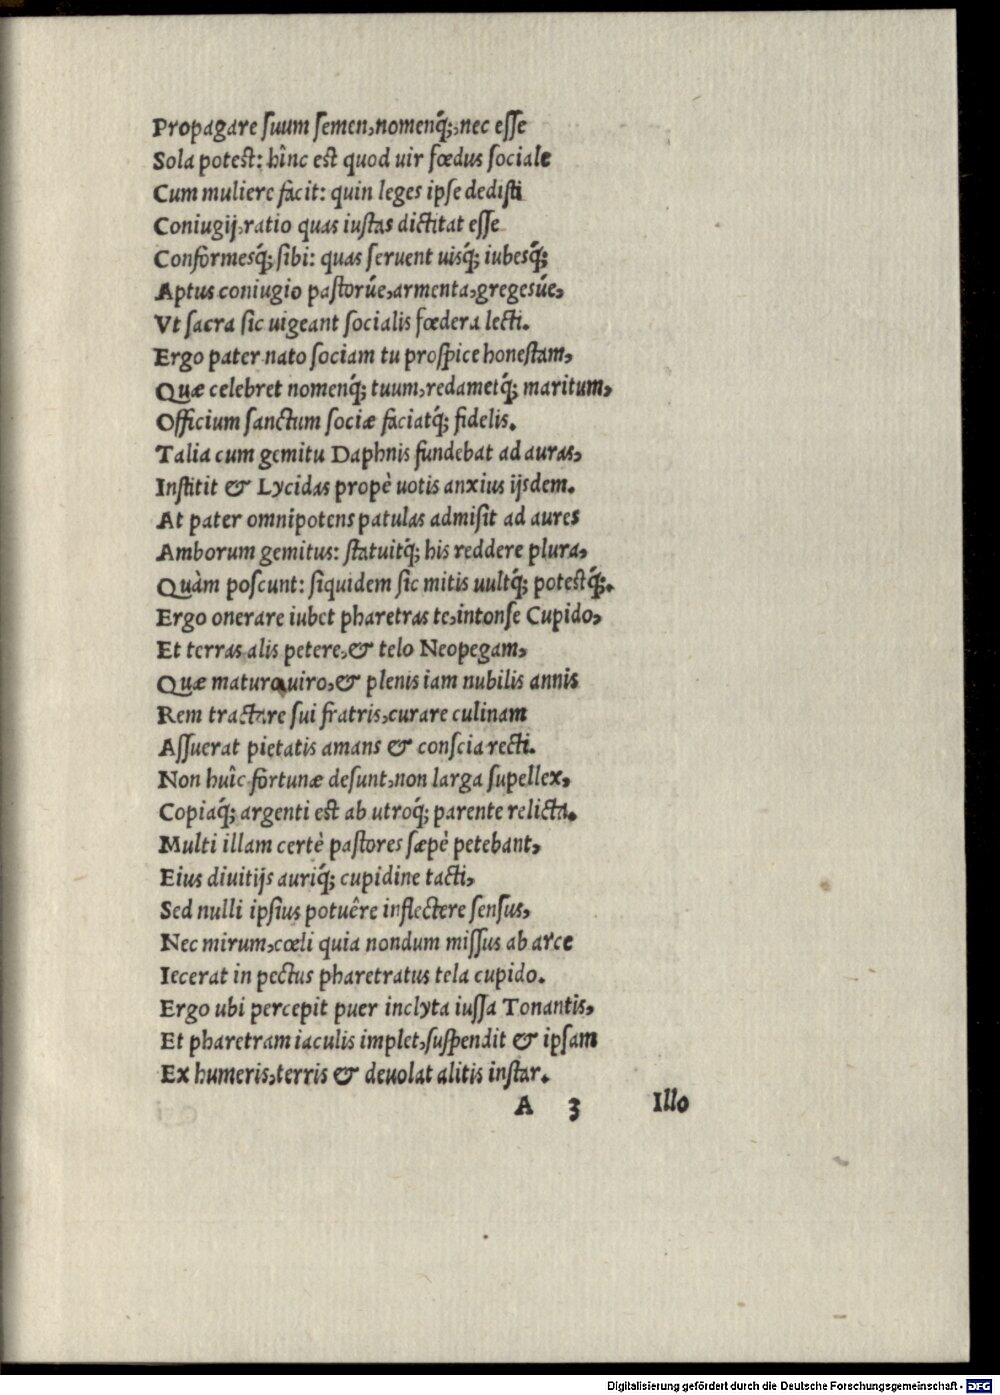 Propagare ſuum ſemen, nomenq́;, nec eſſe
Sola poteſt: hînc eſt quod uir fœdus ſociale
Cum muliere facit: quin leges ipſe dediſti
Coniugij, ratio quas iuſtas dictitat eſſe
Conformesq́; ſibi: quas ſeruent uisq́; iubesq́;
Aptus coniugio paſtorúe, armenta, gregesúe,
Vt ſacra ſic uigeant ſocialis fœdera lecti.
Ergo pater nato ſociam tu proſpice honeſtam,
Quæ celebret nomenq́; tuum, redametq́; maritum,
Officium ſanctum ſociæ faciatq́; fidelis.
Talia cum gemitu Daphnis fundebat ad auras,
Inſtitit & Lycidas propè uotis anxius ijsdem.
At pater omnipotens patulas admiſit ad aures
Amborum gemitus: ſtatuitq́; his reddere plura,
Quàm poſcunt: ſiquidem ſic mitis uultq́; poteſtq́;.
Ergo onerare iubet pharetras te, intonſe Cupido,
Et terras alis petere, & telo Neopegam,
Quæ matura uiro, & plenis iam nubilis annis
Rem tractare ſui fratris, curare culinam
Aſſuerat pietatis amans & conſcia recti.
Non huîc fortunæ deſunt, non larga ſupellex,
Copiaq́; argenti eſt ab utroq́; parente relicta.
Multi illam certè paſtores ſæpè petebant,
Eius diuitijs auriq́; cupidine tacti,
Sed nulli ipſius potuêre inflectere ſenſus,
Nec mirum, cœli quia nondum miſſus ab arce
Iecerat in pectus pharetratus tela cupido.
Ergo ubi percepit puer inclyta iuſſa Tonantis,
Et pharetram iaculis implet, ſuſpendit & ipſam
Ex humeris, terris & deuolat alitis inſtar.
A 3 Illo
Digitalisierung gefördert durch die Deutsche Forschungsgemeinschaft - DFG